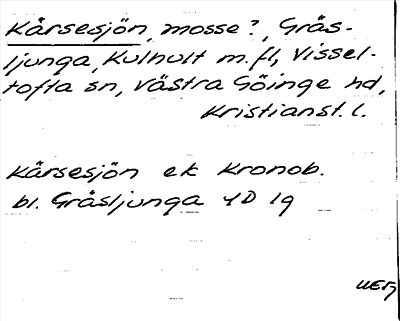 Kårsesjön, mosse?, Grås-
ljunga, Kulhult m.fl, Vissel-
tofta sn, Västra Göinge hd,
Kristianst. l.
Kårsesjön ek Kronob.
bl. Gråsljunga 4D 1g